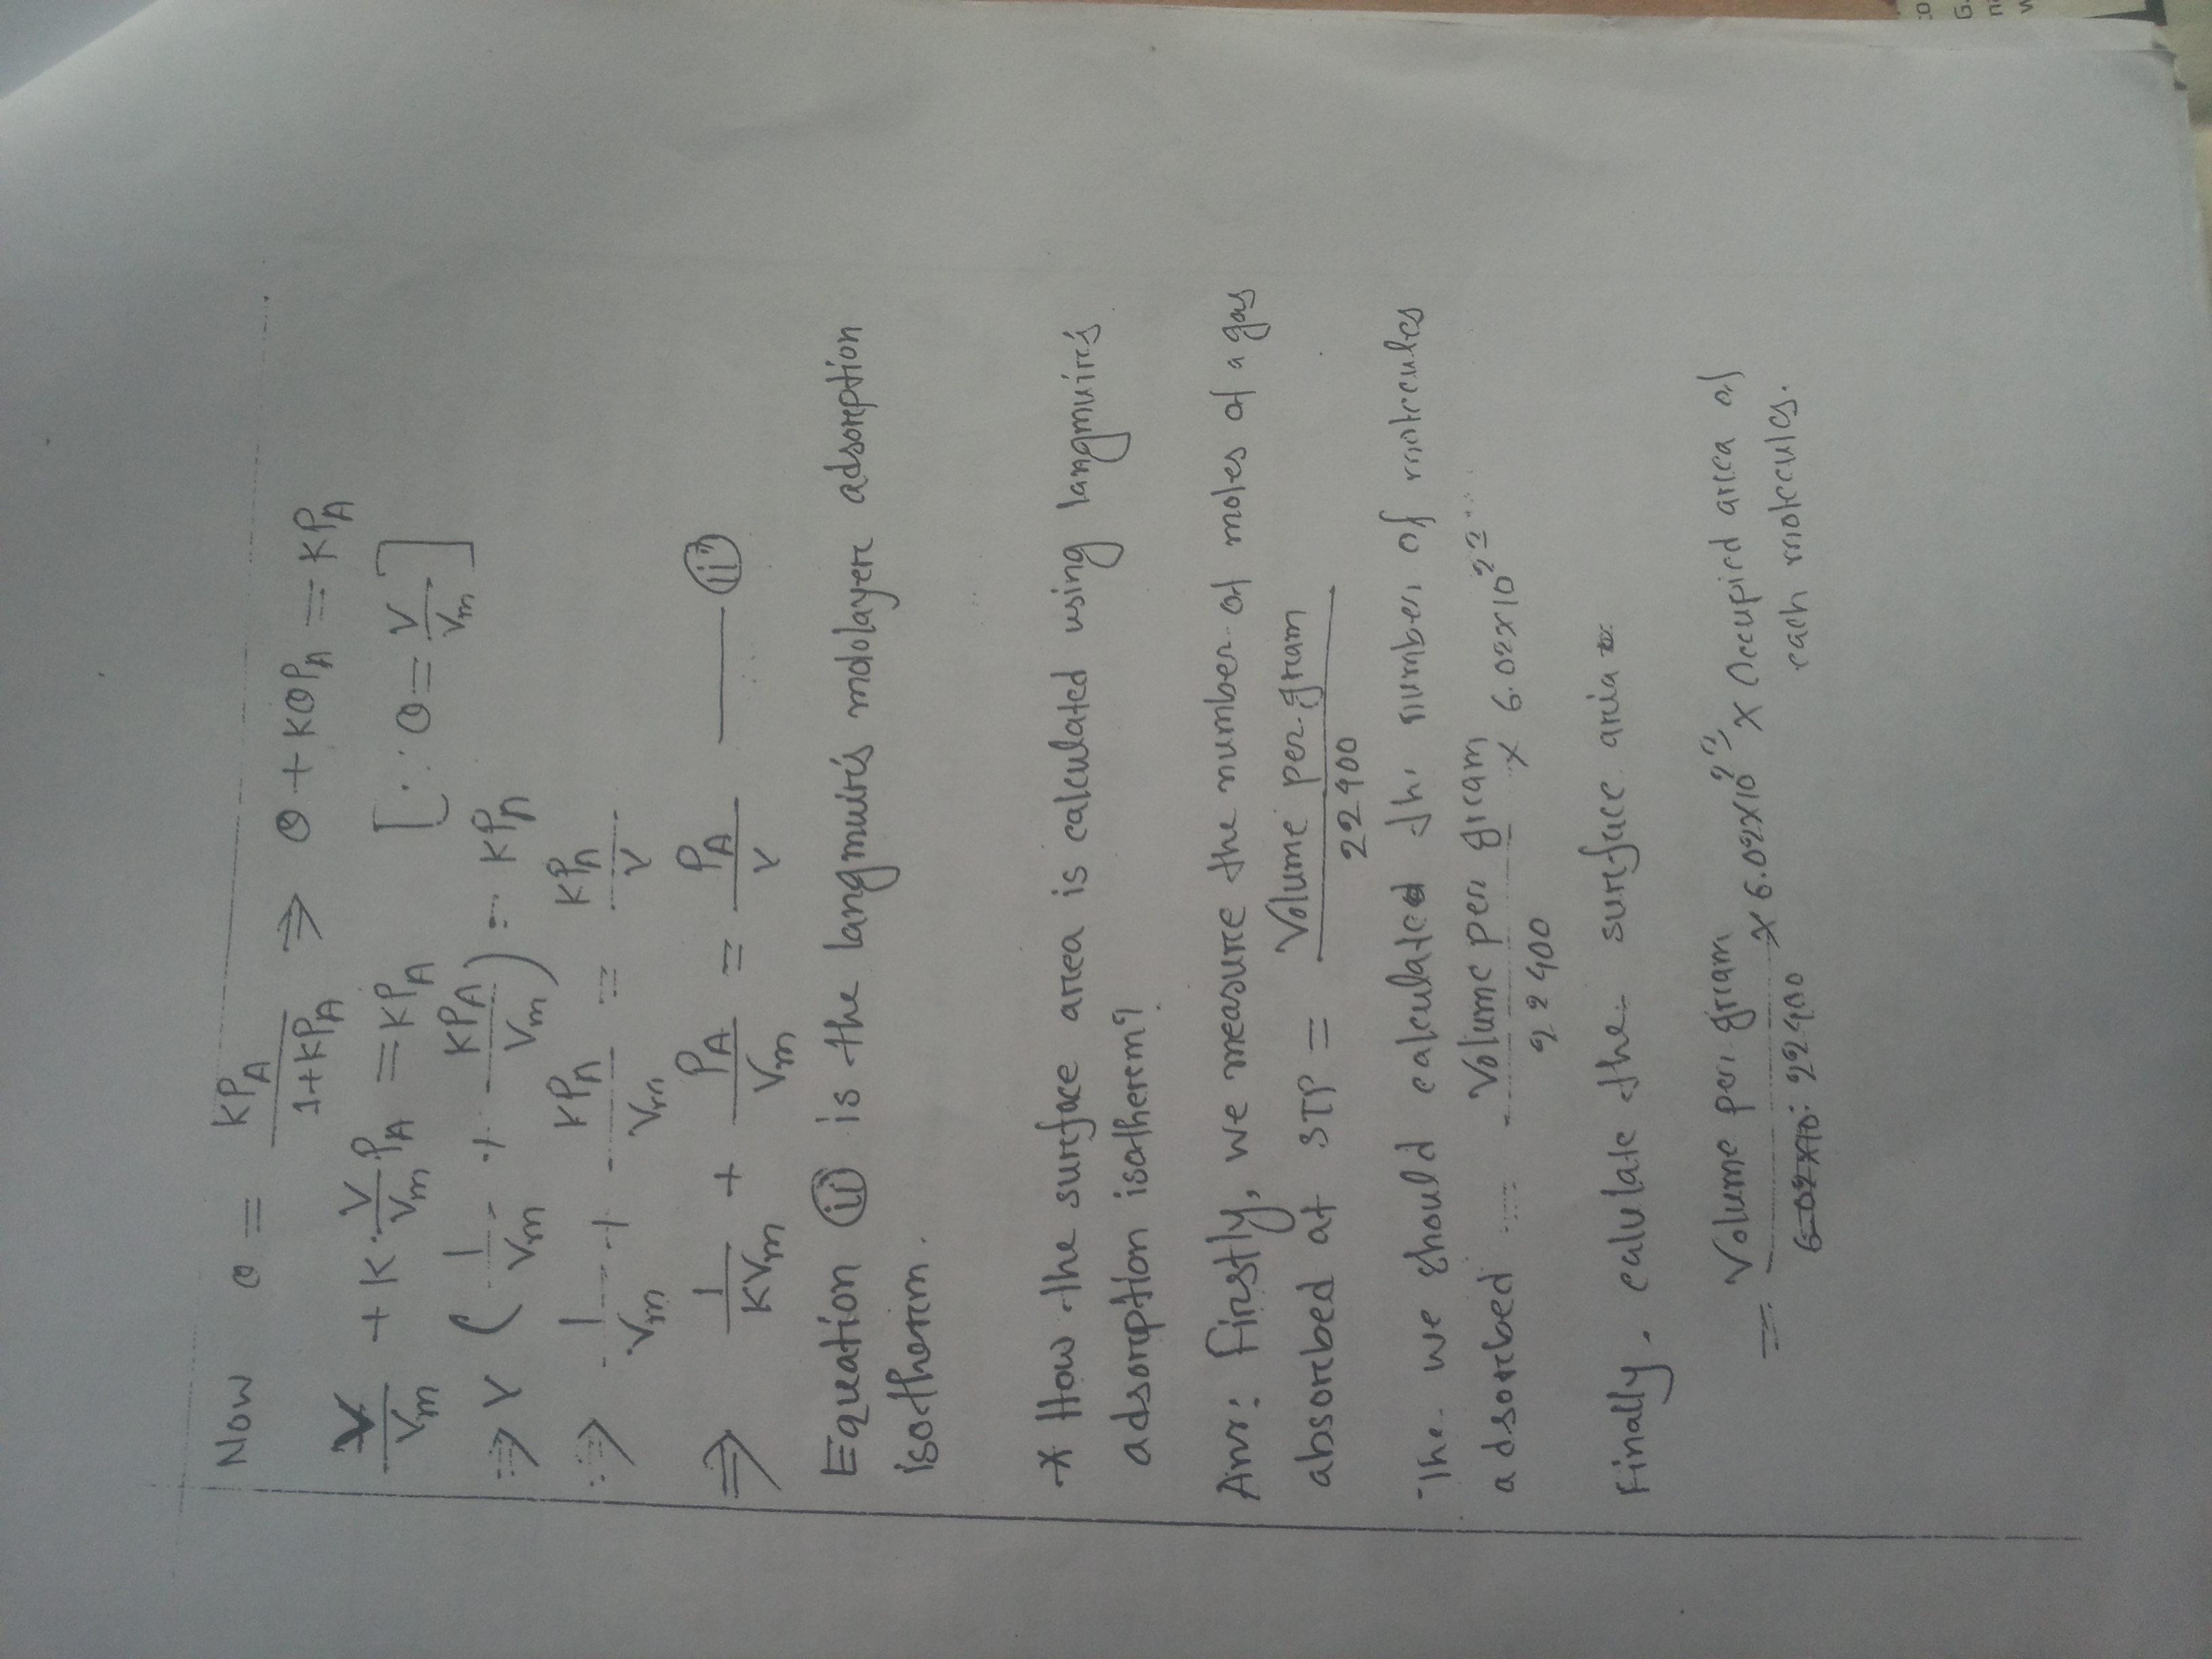 Now θ = KP_A / 1+KP_A ⇒ θ + KθP_A = KP_A
V/Vm + K·V/Vm P_A = KP_A [∵ θ = V/Vm]
⇒ V (1/Vm + KP_A/Vm) = KP_A
⇒ 1/Vm + KP_A/Vm = KP_A/V
⇒ 1/KVm + P_A/Vm = P_A/V —— (ii)
Equation (ii) is the langmuir's molayer adsorption
isotherm.
* How the surface area is calculated using langmuir's
adsorption isotherm?
Ans: Firstly, we measure the number of moles of a gas
absorbed at STP = Volume per gram / 22400
The we should calculated the number of molecules
adsorbed = Volume per gram / 22400 × 6.02×10^23
Finally, calulate the surface aria
= Volume per gram / 22400 × 6.02×10^23 × Occupied area of
each molecules.